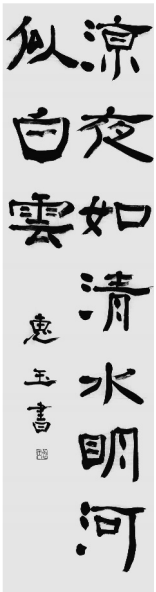 涼夜如清水明河
似白雲
惠玉書